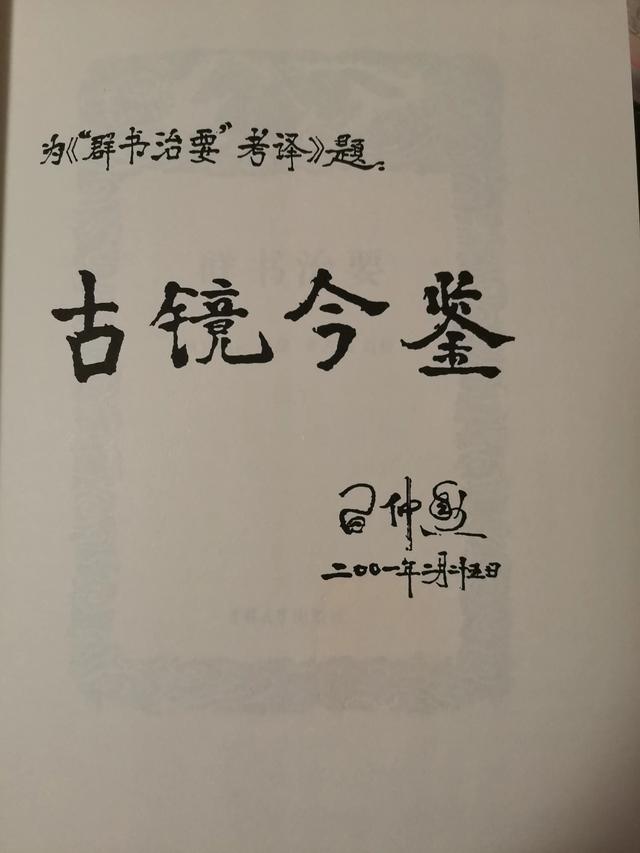 为《“群书治要”考译》题：
古镜今鉴
習仲勳
二〇〇一年二月二十五日